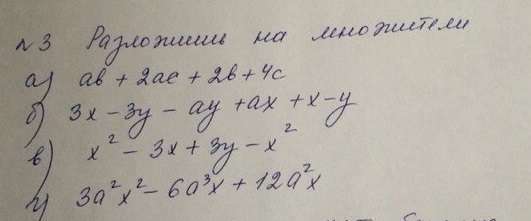 №3 Разложишь на множители
а) ab + 2ac + 2b + 4c
б) 3x - 3y - ay + ax + x - y
в) x² - 3x + 3y - x²
г) 3a²x² - 6a³x + 12a²x